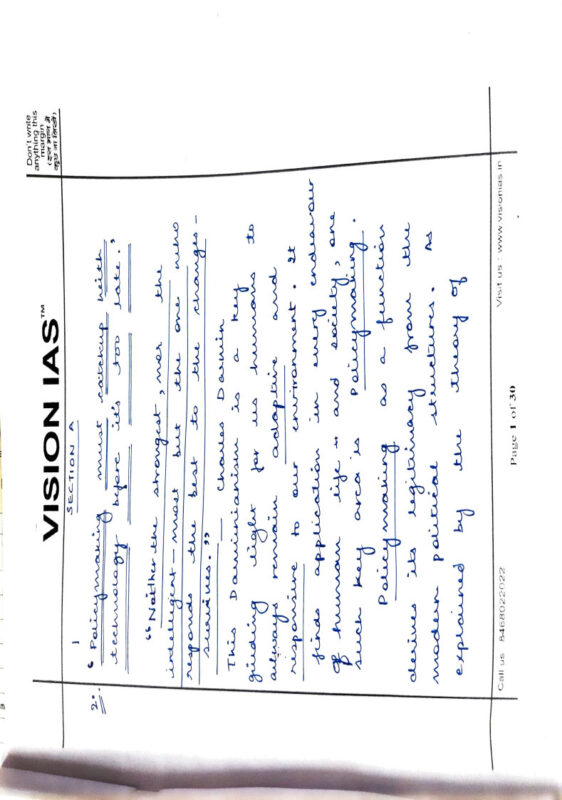 VISION IAS™
Don't write
anything this
margin
(इस भाग में
कुछ ना लिखें)
SECTION A
1
2. "Policymaking must catchup with
technology before it's too late."
"Neither the strongest, nor the
intelligent – most but the one who
responds the best to the changes –
survives."
— Charles Darwin
This Darwinianism is a key
giding light for us humans to
always remain adaptive and
responsive to our environment. It
finds application in every endeavour
of human life – and society, one
such key area is Policymaking.
Policymaking as a function
derives its legitimacy from the
modern political structures. As
explained by the theory of
Call us : 8468022022
Page 1 of 30
Visit us : www.visionias.in